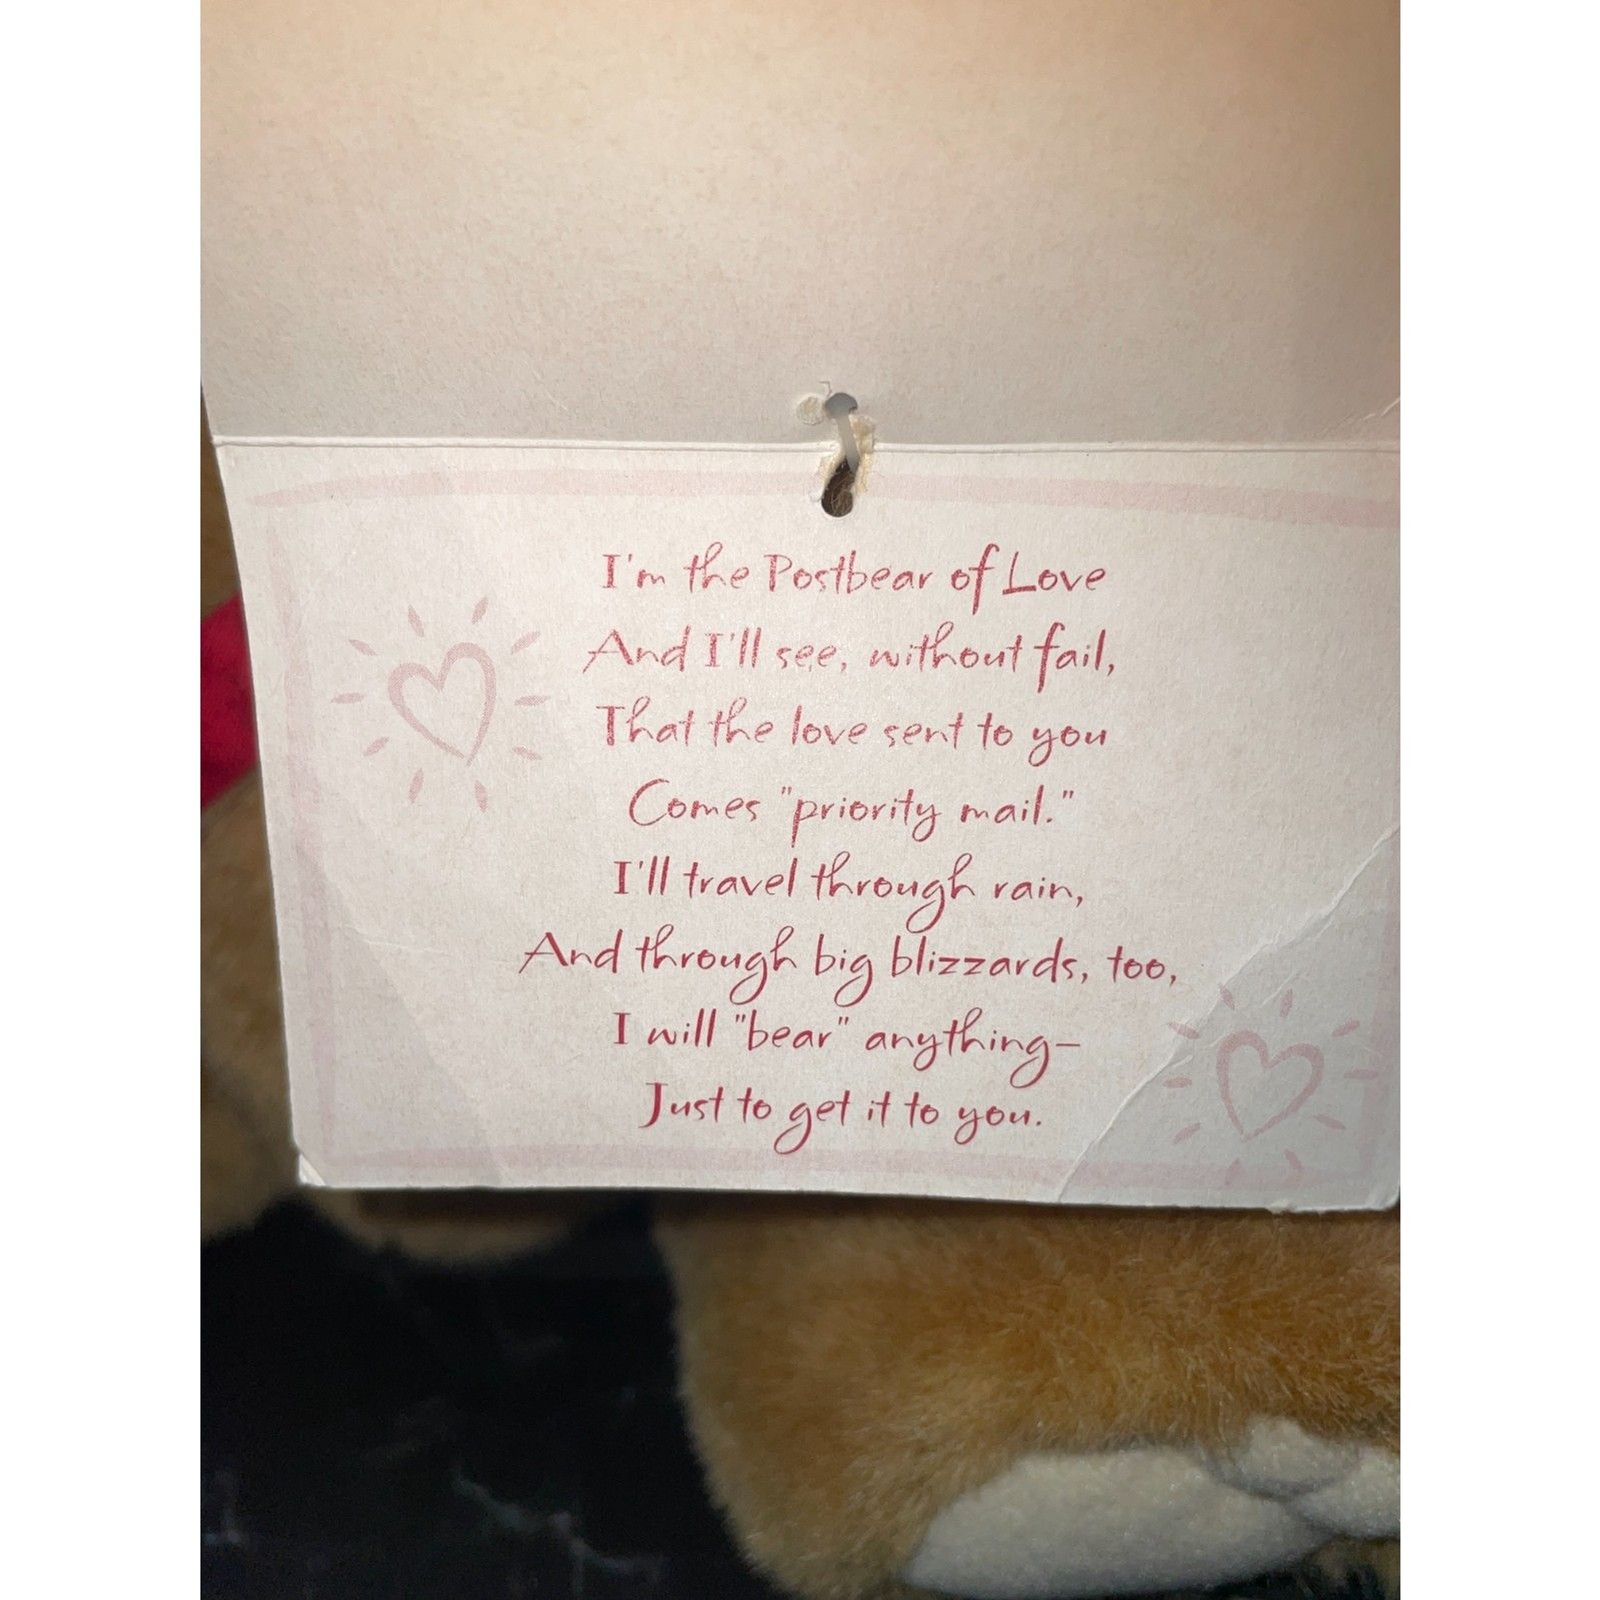 I'm the Postbear of Love
And I'll see, without fail,
That the love sent to you
Comes "priority mail."
I'll travel through rain,
And through big blizzards, too,
I will "bear" anything—
Just to get it to you.